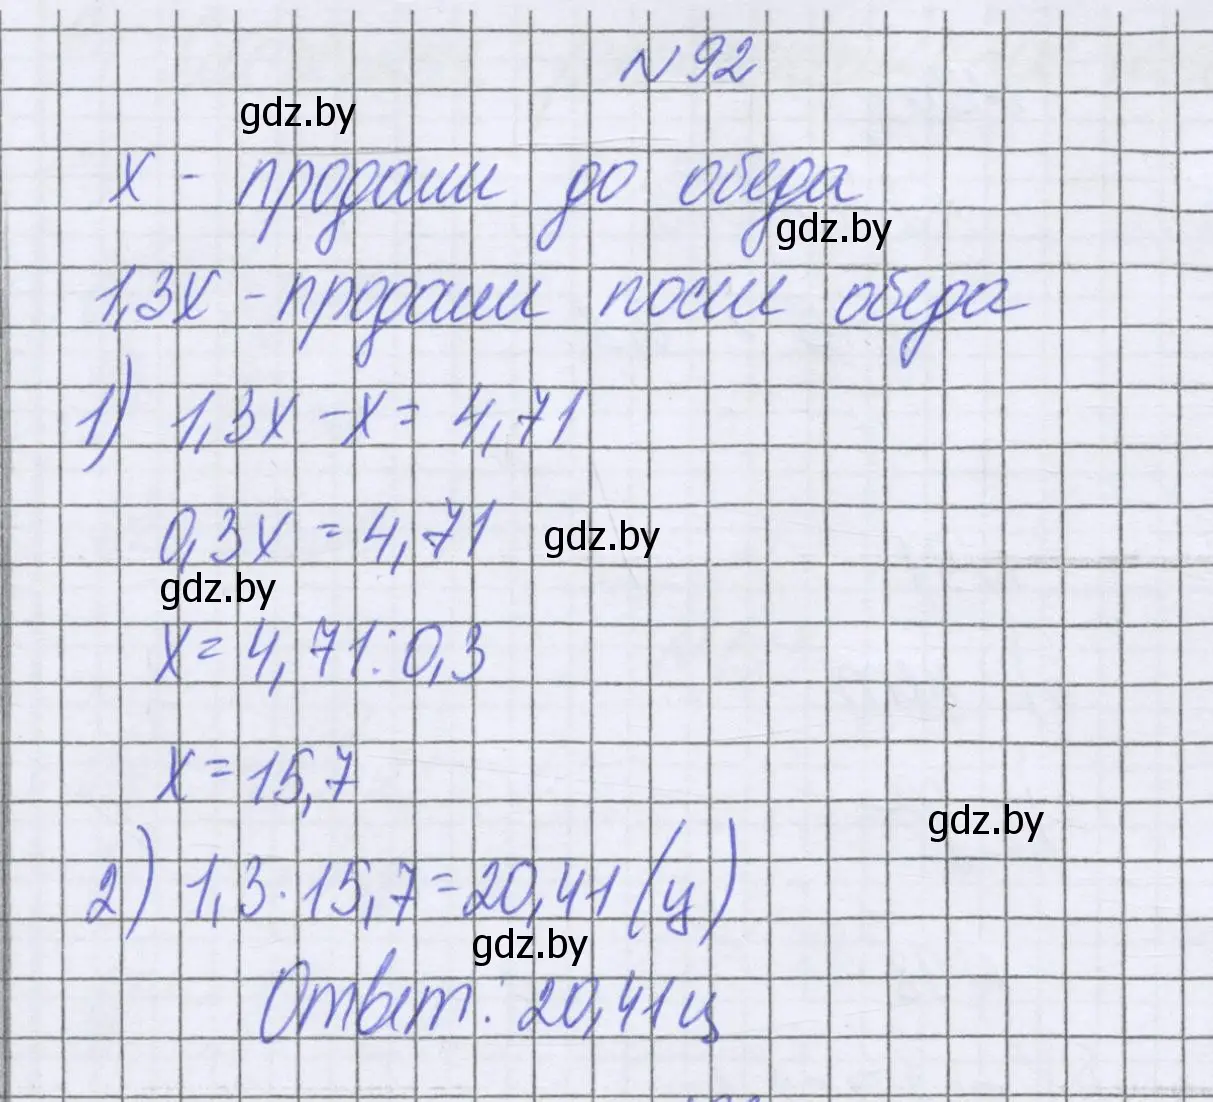 №92
gdz.by
х - продали до обеда
gdz.by
1,3х - продали после обеда
1) 1,3х - х = 4,71
0,3х = 4,71 gdz.by
gdz.by
х = 4,71 : 0,3
х = 15,7
gdz.by
2) 1,3 · 15,7 = 20,41 (ц)
gdz.by
Ответ: 20,41 ц